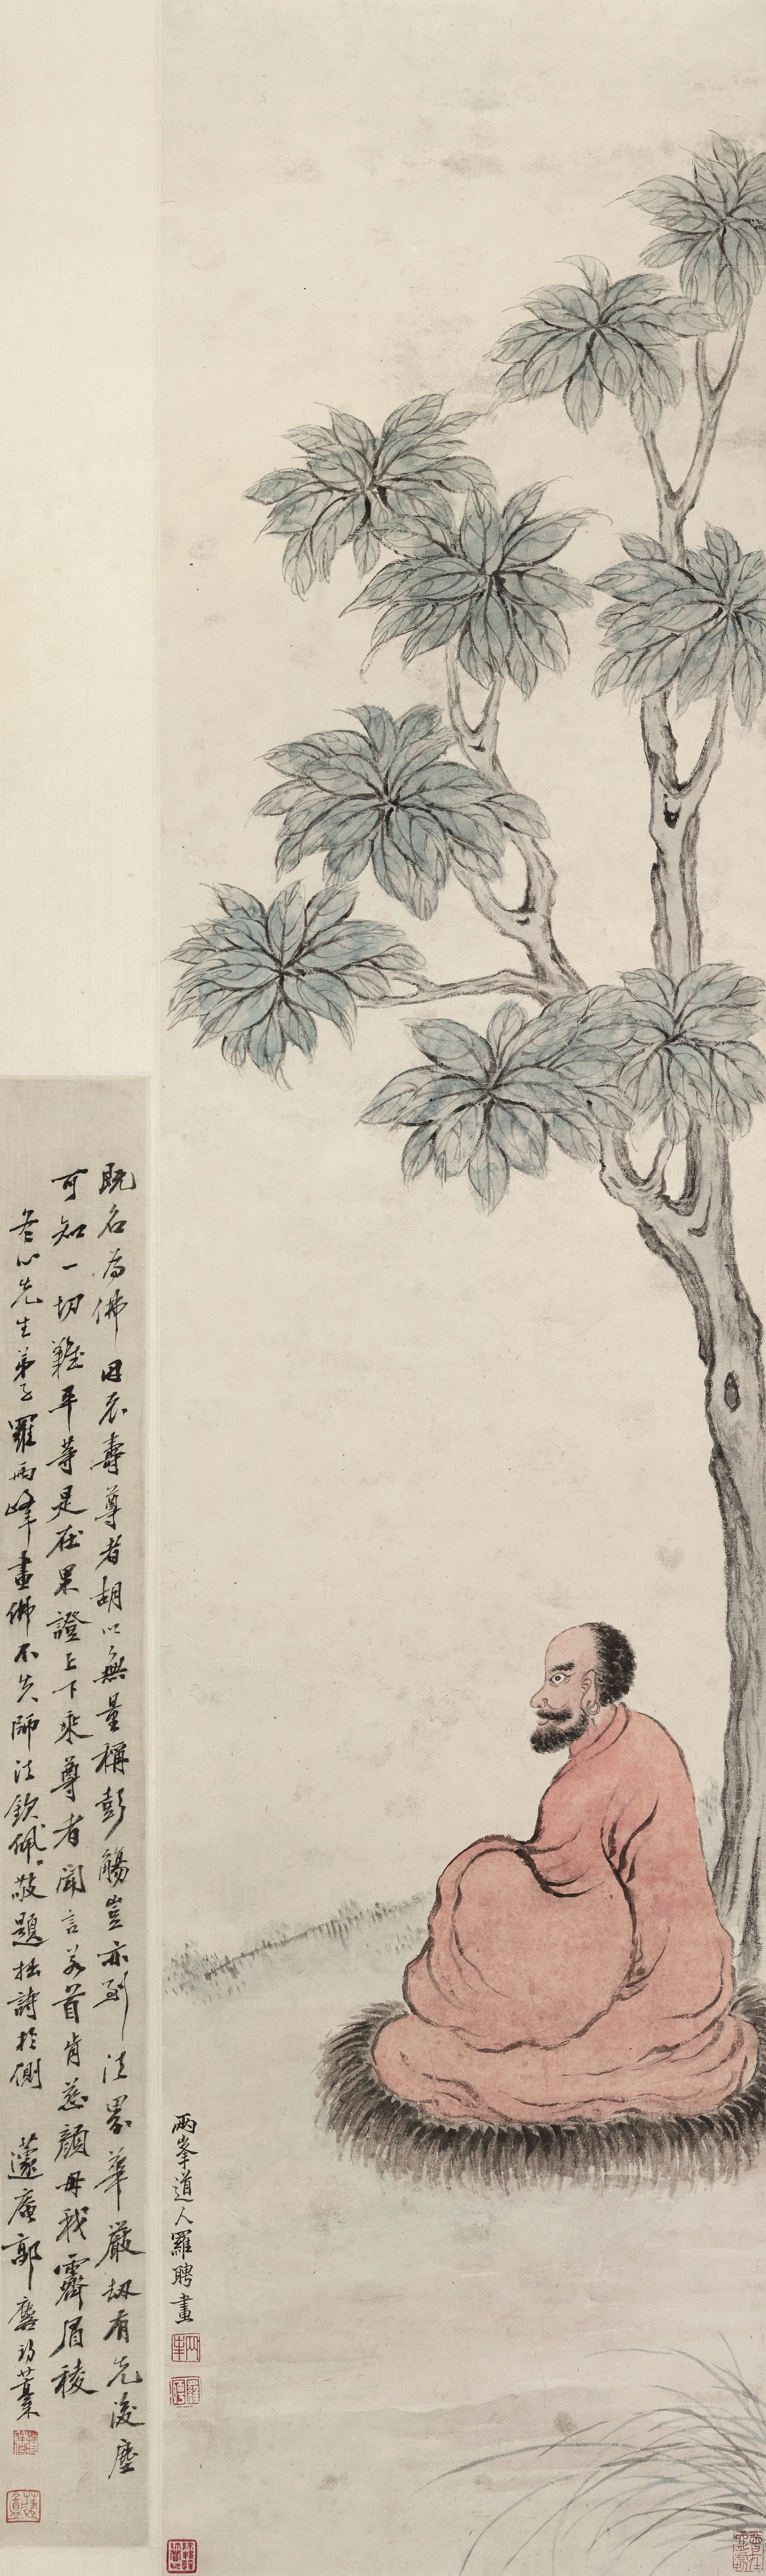 兩峯道人羅聘畫
既名為佛因衣壽尊者胡以無量稱彭觴豈亦到法界華嚴劫有先後塵
可知一切難平等是在果證上下乘尊者聞言若首肯慈顏毋我霽眉稜
冬心先生弟子羅兩峰畫佛不失師法欽佩欽佩敬題拙詩於側 蘧庵郭麐初藁